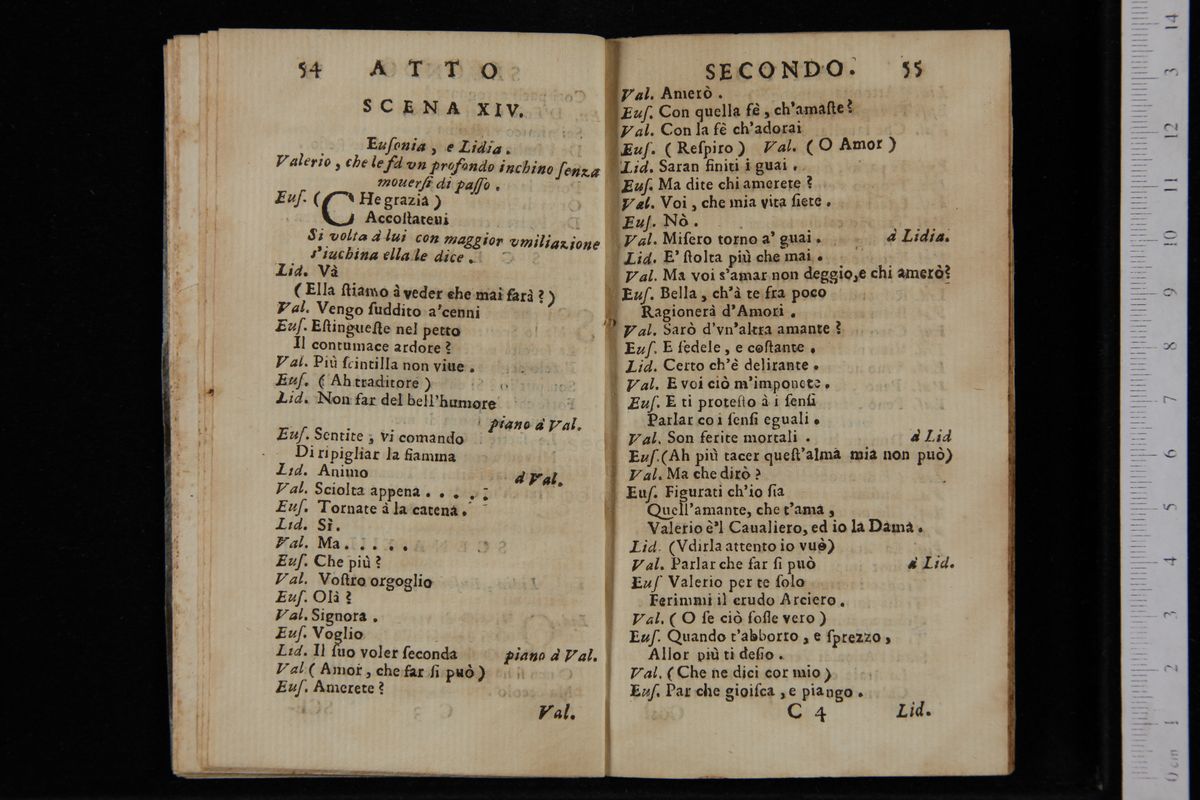 54 ATTO
SCENA XIV.
Euſonia, e Lidia.
Valerio, che le fà vn profondo inchino ſenza
mouerſi di paſſo.
Euſ. (CHe grazia)
Accoſtateui
Si volta à lui con maggior vmiliazione
s'iuchina ella le dice.
Lid. Và
(Ella ſtiamo à veder che mai farà?)
Val. Vengo ſuddito a'cenni
Euſ. Eſtingueſte nel petto
Il contumace ardore?
Val. Più ſcintilla non viue.
Euſ. (Ah traditore)
Lid. Non far del bell'humore
piano à Val.
Euſ. Sentite, vi comando
Di ripigliar la fiamma
Lid. Animo à Val.
Val. Sciolta appena.....
Euſ. Tornate à la catena.
Lid. Sì.
Val. Ma.....
Euſ. Che più?
Val. Voſtro orgoglio
Euſ. Olà?
Val. Signora.
Euſ. Voglio
Lid. Il ſuo voler ſeconda piano à Val.
Val (Amor, che far ſi può)
Euſ. Amerete?
Val.
SECONDO. 55
Val. Amerò.
Euſ. Con quella fè, ch'amaſte?
Val. Con la fè ch'adorai
Euſ. (Reſpiro) Val. (O Amor)
Lid. Saran finiti i guai.
Euſ. Ma dite chi amerete?
Val. Voi, che mia vita ſiete.
Euſ. Nò.
Val. Miſero torno a' guai. à Lidia.
Lid. E' ſtolta più che mai.
Val. Ma voi s'amar non deggio,e chi amerò?
Euſ. Bella, ch'à te fra poco
Ragionerà d'Amori.
Val. Sarò d'vn'altra amante?
Euſ. E fedele, e coſtante.
Lid. Certo ch'è delirante.
Val. E voi ciò m'imponete.
Euſ. E ti proteſto à i ſenſi
Parlar co i ſenſi eguali.
Val. Son ferite mortali. à Lid
Euſ.(Ah più tacer queſt'alma mia non può)
Val. Ma che dirò?
Euſ. Figurati ch'io ſia
Quell'amante, che t'ama,
Valerio è'l Caualiero, ed io la Dama.
Lid. (Vdirla attento io vuò)
Val. Parlar che far ſi può à Lid.
Euſ Valerio per te ſolo
Ferimmi il crudo Arciero.
Val. (O ſe ciò foſſe vero)
Euſ. Quando t'abborro, e ſprezzo,
Allor più ti deſio.
Val. (Che ne dici cor mio)
Euſ. Par che gioiſca, e piango.
C 4 Lid.
0 cm 1 2 3 4 5 6 7 8 9 10 11 12 3 14